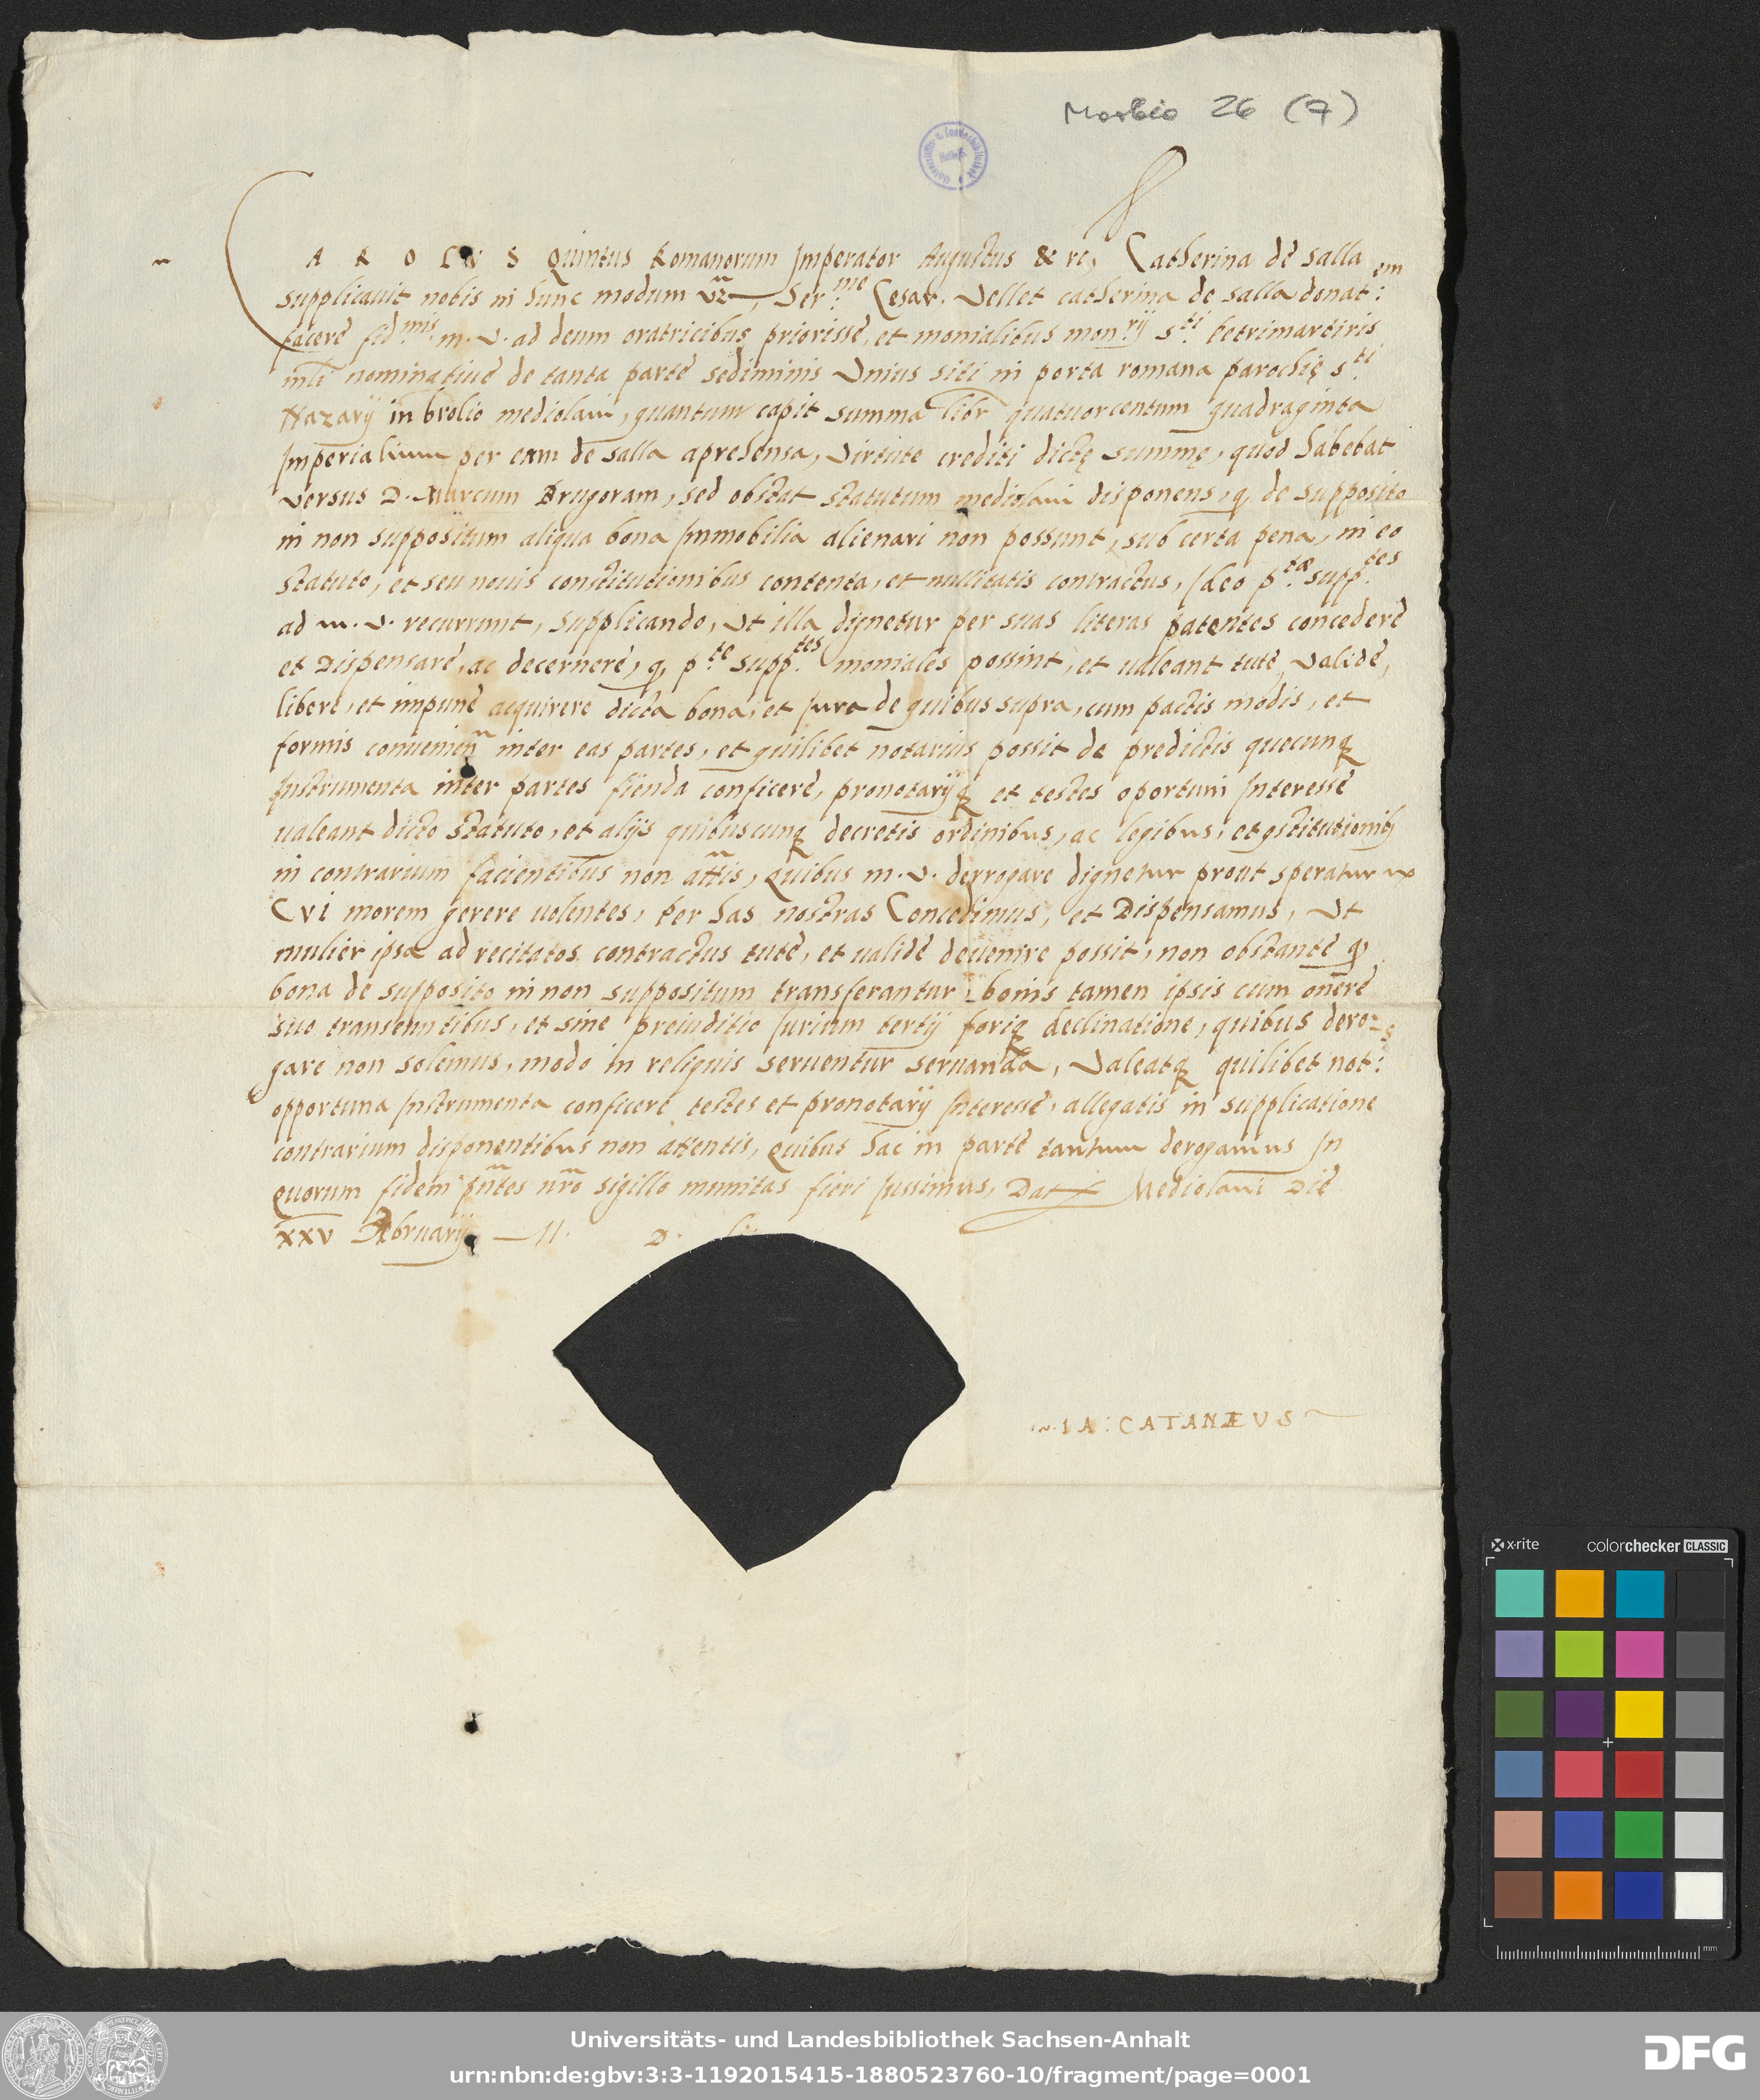 Morbio 26 (7)
CAROLVS Quintus Romanorum Imperator Augustus & rc, Catherina de Salla
supplicauit nobis in hunc modum vz, Ser.me Cesar. Vellet catherina de salla donat:em
facere fid.mis m. v. ad deum oratricibus priorisse, et monialibus mon.rij s.ti petrimartiris
mli nominatiue de tanta parte sediminis Vnius siti in porta romana parochię s.ti
Nazarij in brolio mediolani, quantum capit summa libr quatuorcentum quadraginta
Imperialium per eam de salla aprehensa, Virtute crediti dictę summę, quod habebat
versus D. Marcum Brugoram, sed obstat statutum mediolani disponens, q, de supposito
in non suppositum aliqua bona Immobilia alienari non possunt, sub certa pena, in eo
statuto, et seu nouis constitutionibus contenta, et nullitatis contractus, Ideo p.tæ supp.tes
ad m. v. recurrunt, Supplicando, Vt illa dignetur per suas literas patentes concedere
et Dispensare, ac decernere, q, p.te supp.tes moniales possint, et ualeant tute, Valide,
libere, et impune acquirere dicta bona, et Jura de quibus supra, cum pactis modis, et
formis conuenien inter eas partes, et quilibet notarius possit de predictis quecunq
Instrumenta inter partes fienda conficere, pronotarijq et testes oportuni Interesse
ualeant dicto statuto, et alijs quibuscunq decretis ordinibus, ac legibus, et gstitutionib
in contrarium facientibus non attis, Quibus m. v. derrogare dignetur prout speratur
Cvi morem gerere uolentes, Per has nostras Concedimus, et Dispensamus, Vt
mulier ipsa ad recitatos contractus tute, et ualide deuenire possit, non obstante q
bona de supposito in non suppositum transferantur, bonis tamen ipsis cum onere
suo transeuntibus, et sine preiuditio Jurium tertij foriq declinatione, quibus dero=
gare non solemus, modo in reliquis seruentur seruanda, Valeatq quilibet not:s
opportuna Instrumenta conficere testes et pronotarij Interesse, allegatis in supplicatione
contrarium disponentibus non attentis, Quibus hac in parte tantum derogamus In
quorum fidem pntes nro sigillo munitas fieri Jussimus, Dat Mediolani Die
xxv Februarij M. D.
IA: CATANÆVS
x-rite colorchecker CLASSIC
mm
Universitäts- und Landesbibliothek Sachsen-Anhalt
urn:nbn:de:gbv:3:3-1192015415-1880523760-10/fragment/page=0001
DFG